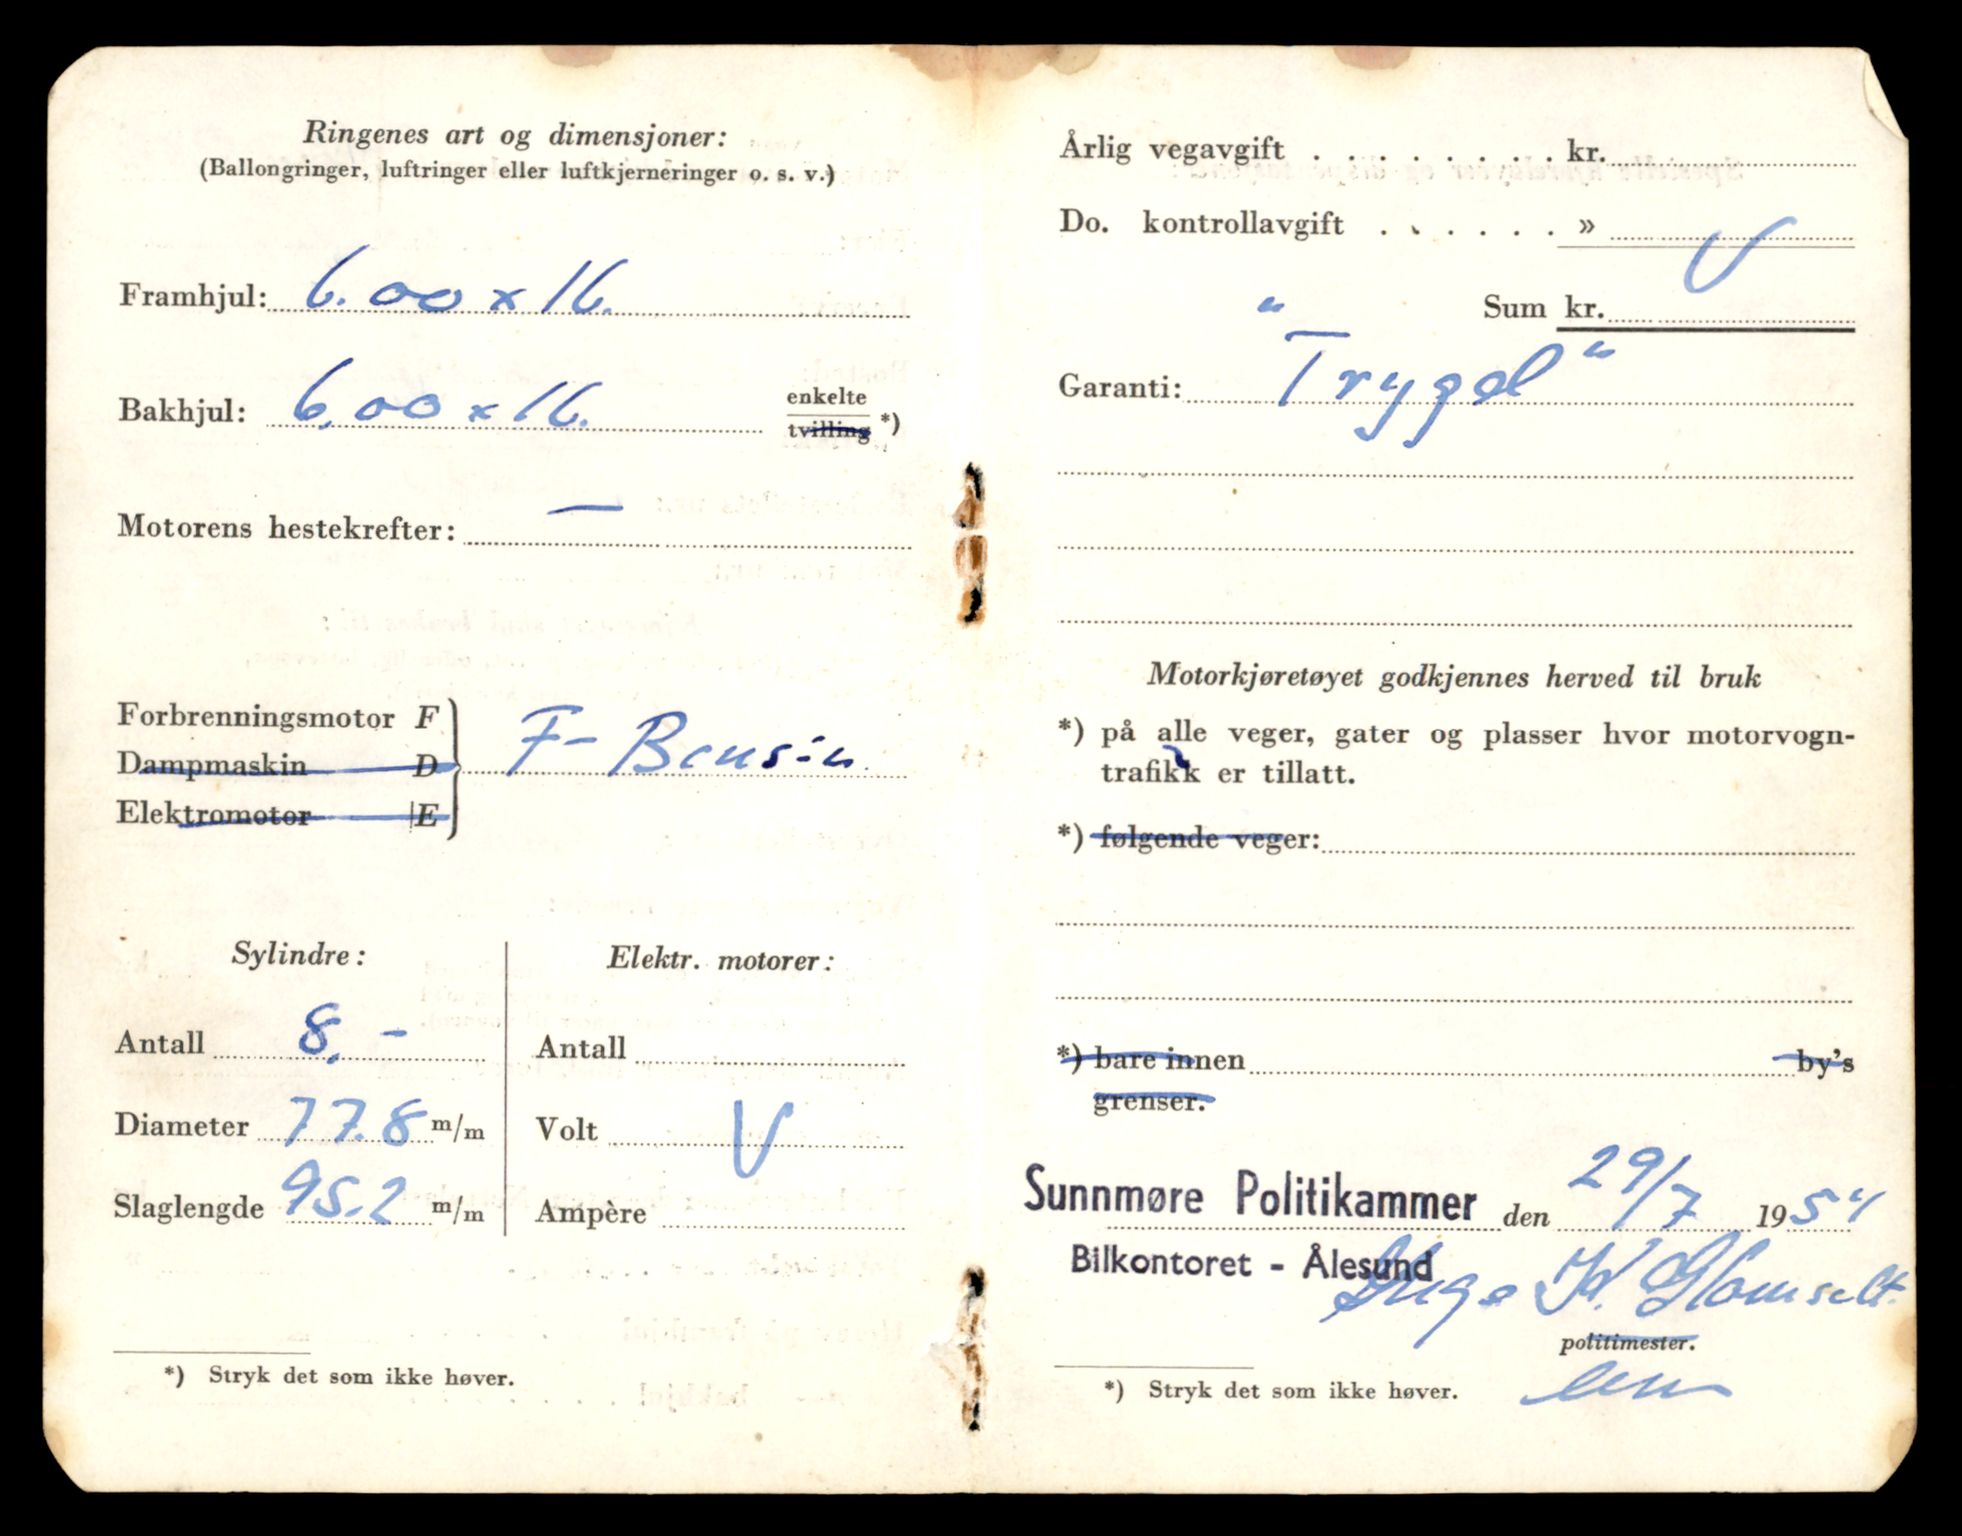 Ringenes art og dimensjoner:
(Ballongringer, luftringer eller luftkjerneringer o. s. v.)
Framhjul: 6.00 x 16.
Bakhjul: 6,00 x 16. enkelte
tvilling *)
Motorens hestekrefter: —
Forbrenningsmotor F
Dampmaskin D F- Bensin
Elektromotor E
Sylindre:
Antall 8.-
Diameter 77.8 m/m
Slaglengde 95.2 m/m
Elektr. motorer:
Antall
Volt
Ampère
*) Stryk det som ikke høver.
Årlig vegavgift . . . . . . . . kr.
Do. kontrollavgift . . . . . . »
Sum kr.
Garanti: "Trygd"
Motorkjøretøyet godkjennes herved til bruk
*) på alle veger, gater og plasser hvor motorvogn-
trafikk er tillatt.
*) følgende veger:
*) bare innen by's
grenser.
Sunnmøre Politikammer den 29/7 1954
Bilkontoret - Ålesund
politimester.
*) Stryk det som ikke høver.